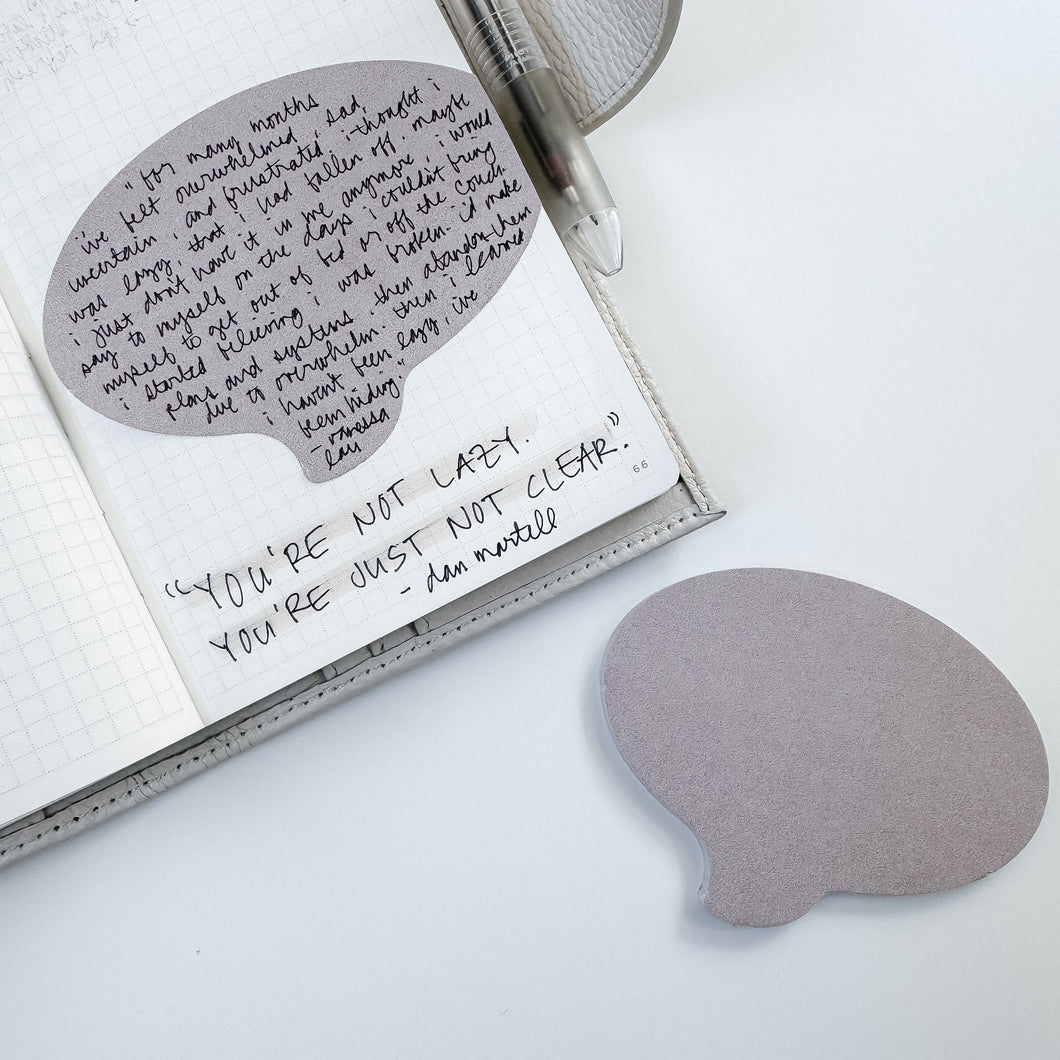 "for many months
i've felt overwhelmed, sad,
uncertain, and frustrated. i thought i
was lazy, that i had fallen off, maybe
i just don't have it in me anymore, i would
say to myself on the days i couldn't bring
myself to get out of bed or off the couch.
i started believing i was broken. i'd make
plans and systems, then abandon them
due to overwhelm. then i learned
i haven't been lazy, i've
been hiding."
- vanessa
lau
"YOU'RE NOT LAZY.
YOU'RE JUST NOT CLEAR."
- dan martell
66